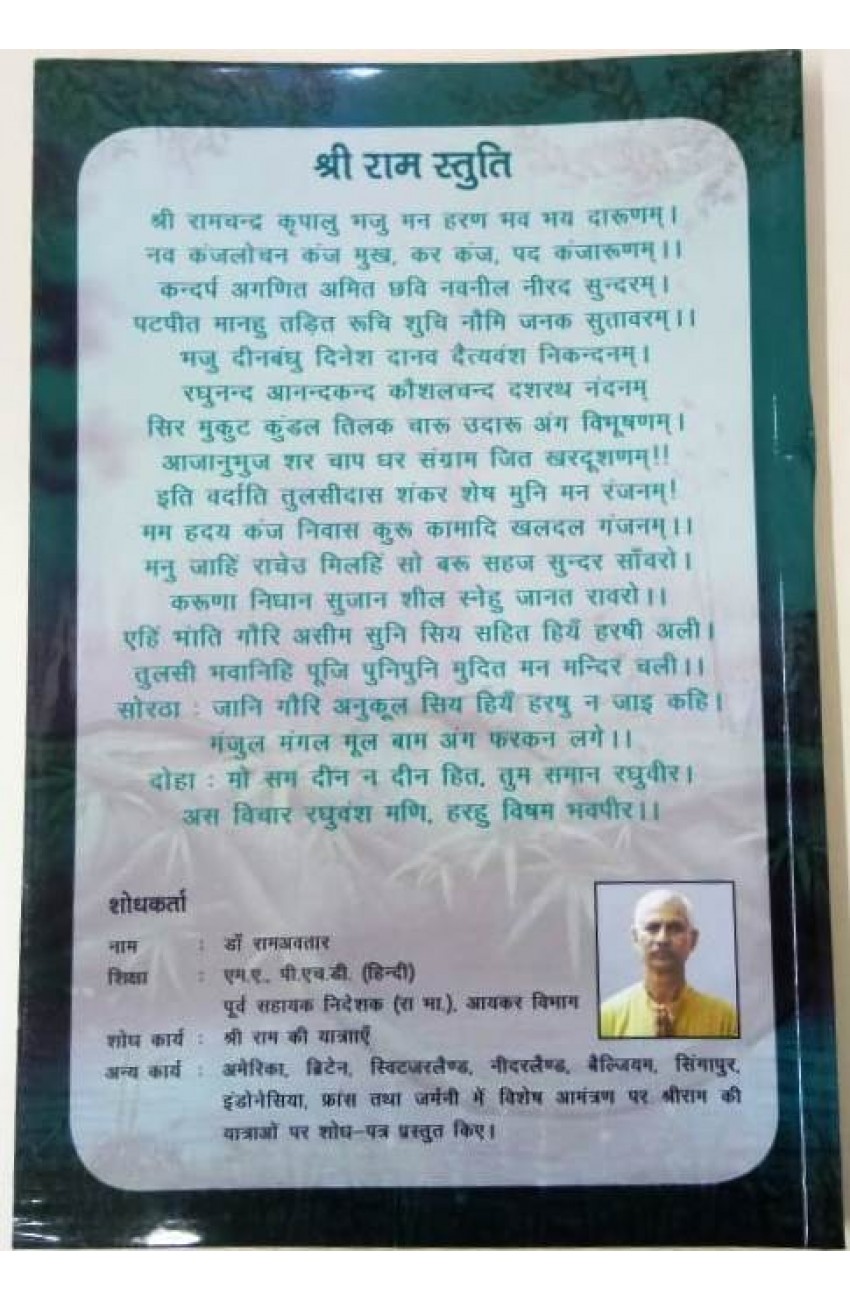 श्री राम स्तुति
श्री रामचन्द्र कृपालु भजु मन हरण भव भय दारूणम्।
नव कंजलोचन कंज मुख, कर कंज, पद कंजारूणम्।।
कन्दर्प अगणित अमित छवि नवनील नीरद सुन्दरम्।
पटपीत मानहु तड़ित रूचि शुचि नौमि जनक सुतावरम्।।
भजु दीनबंधु दिनेश दानव दैत्यवंश निकन्दनम्।
रघुनन्द आनन्दकन्द कौशलचन्द दशरथ नंदनम्
सिर मुकुट कुंडल तिलक चारू उदारू अंग विभूषणम्।
आजानुभुज शर चाप धर संग्राम जित खरदूशणम्!!
इति वर्दाति तुलसीदास शंकर शेष मुनि मन रंजनम्!
मम हदय कंज निवास कुरू कामादि खलदल गंजनम्।।
मनु जाहिं राचेउ मिलहि सो बरू सहज सुन्दर साँवरो।
करूणा निधान सुजान शील स्नेहु जानत रावरो।।
एहिं भांति गौरि असीम सुनि सिय सहित हियँ हरषी अली।
तुलसी भवानिहि पूजि पुनिपुनि मुदित मन मन्दिर चली।।
सोरठा : जानि गौरि अनुकूल सिय हियँ हरषु न जाइ कहि।
मंजुल मंगल मूल बाम अंग फरकन लगे।।
दोहा : मो सम दीन न दीन हित, तुम समान रघुवीर।
अस विचार रघुवंश मणि, हरहु विषम भवपीर।।
शोधकर्ता
नाम : डॉ रामअवतार
शिक्षा : एम.ए., पी.एच.डी. (हिन्दी)
पूर्व सहायक निदेशक (रा भा.), आयकर विभाग
शोध कार्य : श्री राम की यात्रााएँ
अन्य कार्य : अमेरिका, ब्रिटेन, स्विटजरलैण्ड, नीदरलैण्ड, बैल्जियम, सिंगापुर,
इंडोनेसिया, फ्रांस तथा जर्मनी में विशेष आमंत्रण पर श्रीराम की
यात्राओं पर शोध-पत्र प्रस्तुत किए।